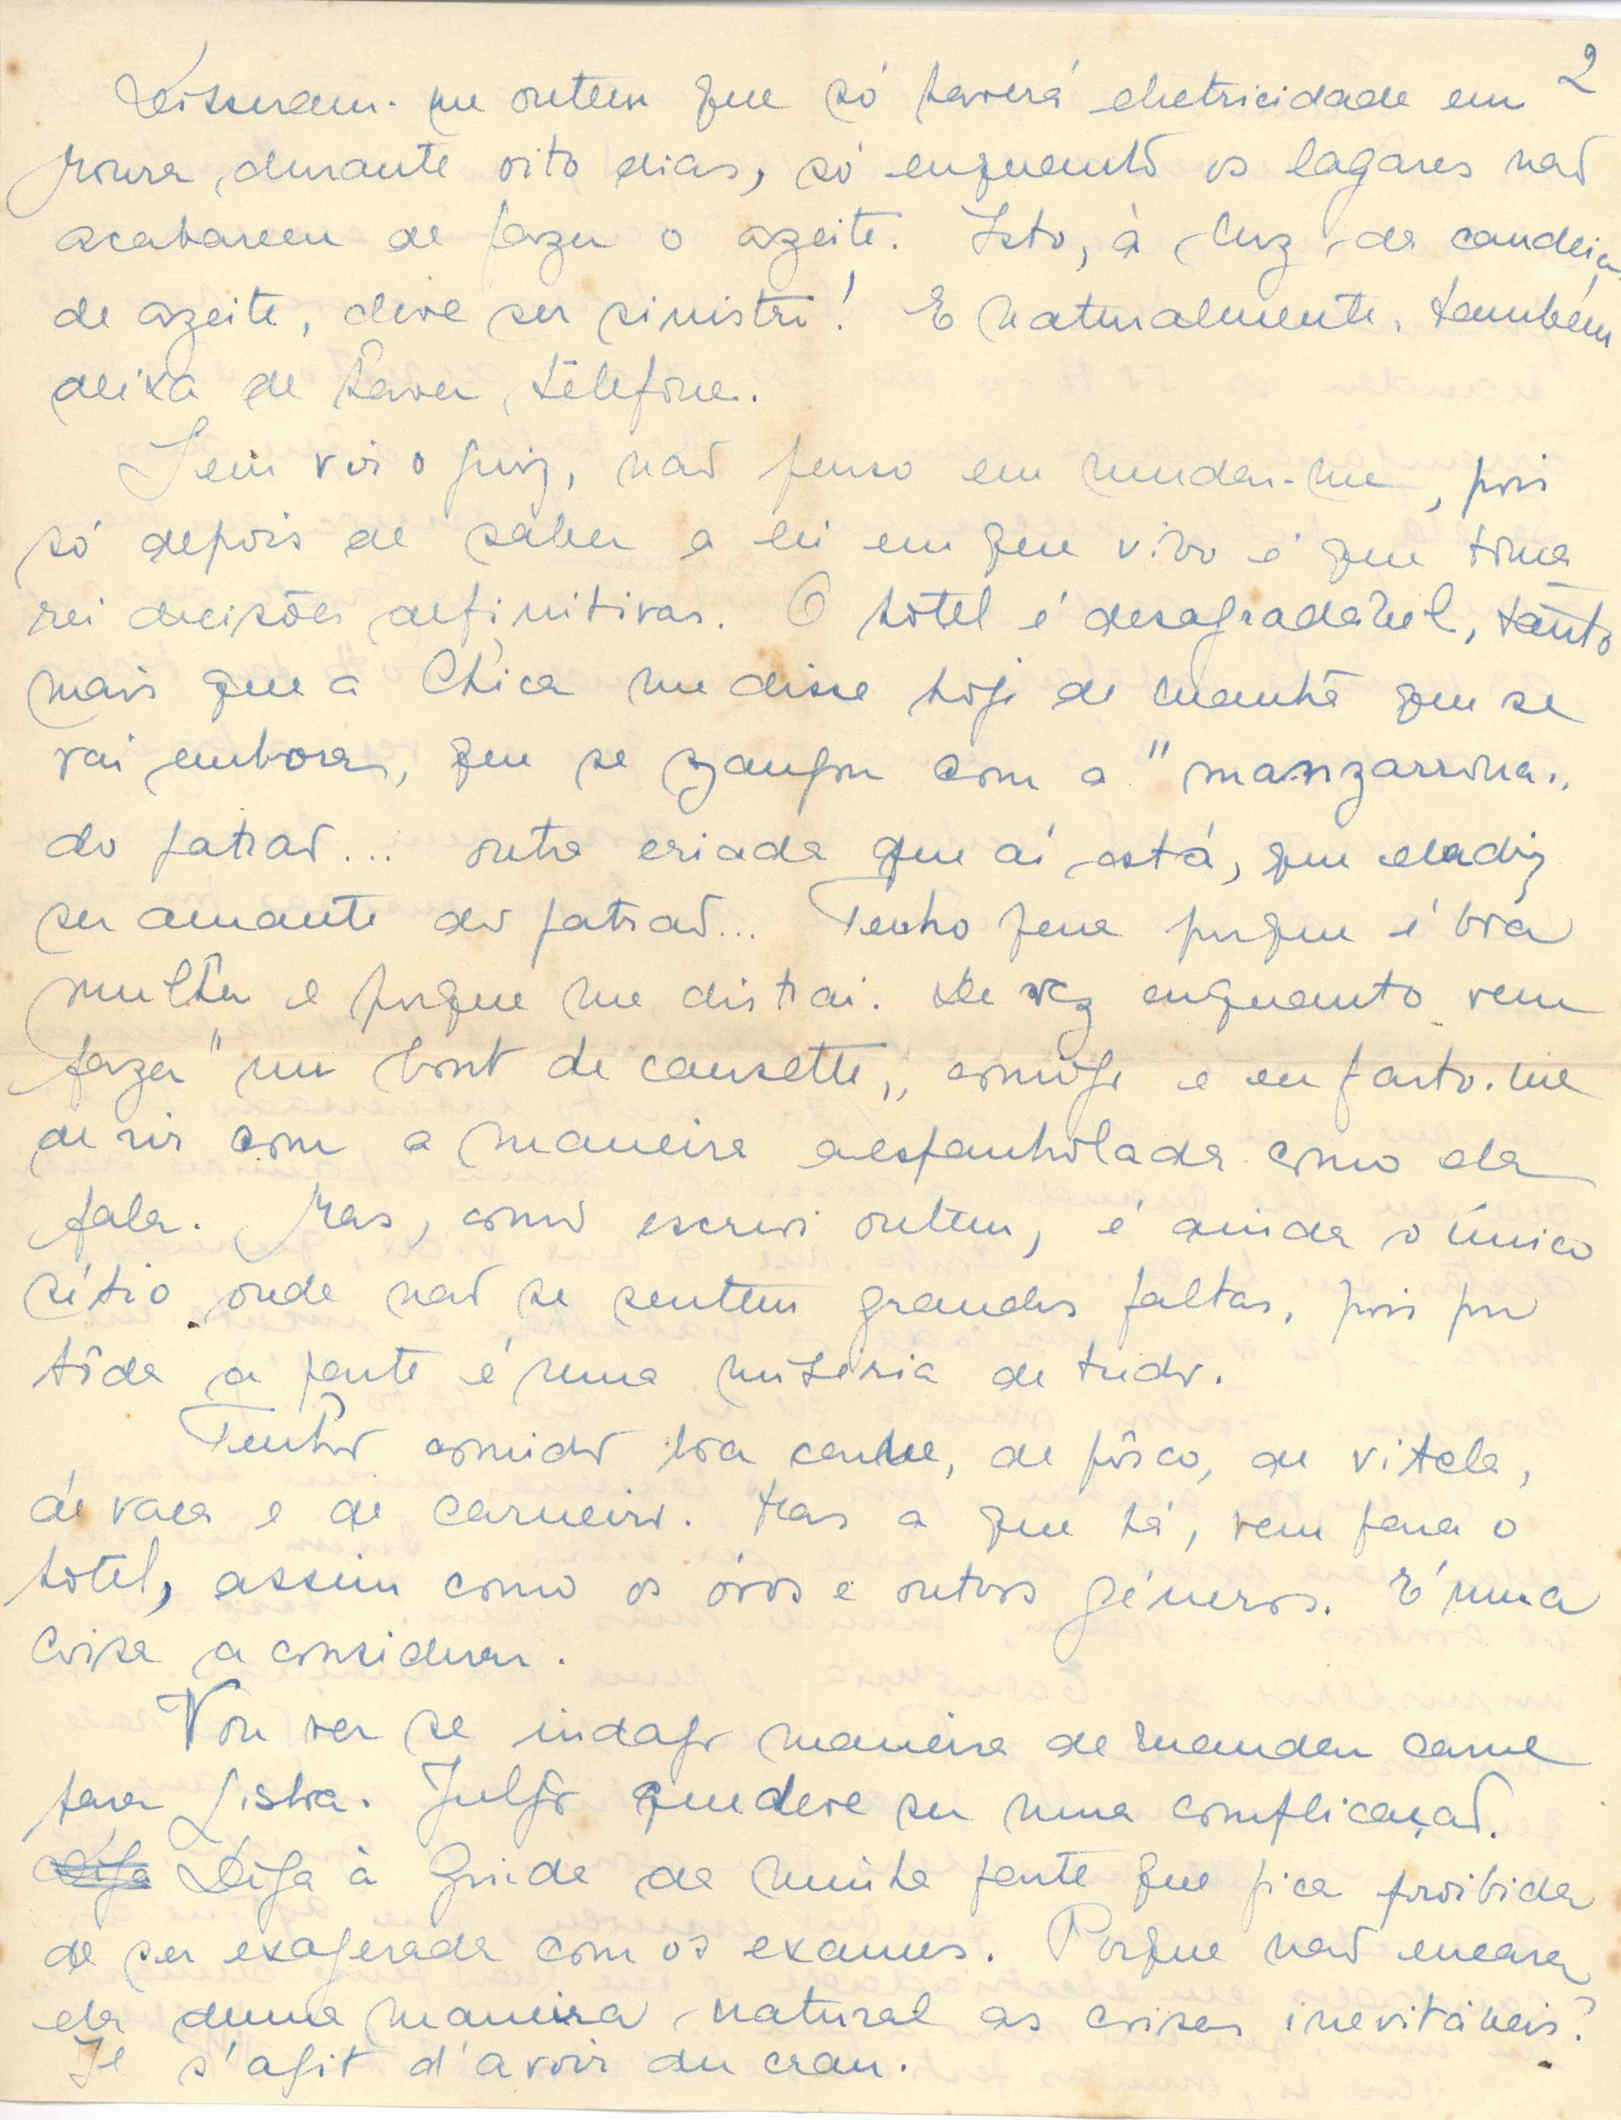 2
Disseram-me ontem que só haverá eletricidade em
Moura durante oito dias, só enquanto os lagares não
acabarem de fazer o azeite. Isto, à luz da candeia
de azeite, deve ser sinistro! E naturalmente, também
deixa de haver télefone.
Sem vir o juiz, não penso em mudar-me, pois
só depois de saber a lei em que vivo é que toma
rei decisões definitivas. O hotel é desagradável, tanto
mais que a Chica me disse hoje de manhã que se
vai embora, que se zangou com a "manzarrona"
do patrão... outra criada que aí está, que ela diz
ser amante do patrão... Tenho pena porque é boa
mulher e porque me distrai. De vez enquanto vem
fazer "un bout de causette" comigo e eu farto-me
de rir com a maneira aespanholada como ela
fala. Mas, como escrevi ontem, é ainda o único
sítio onde não se sentem grandes faltas, pois por
tôda a parte é uma miséria de tudo.
Tenho comido boa carne, de pôrco, de vitela,
de vaca e de carneiro. Mas a que há, vem para o
hotel, assim como os óvos e outros géneros. É uma
coisa a considerar.
Vou ver se indago maneira de mandar carne
para Lisboa. Julgo que deve ser uma complicação.
Diga Diga à Guida da minha parte que fica proibida
de ser exagerada com os exames. Porque não encara
ela duma maneira natural as coisas inevitáveis?
Il s'agit d'avoir du cran.